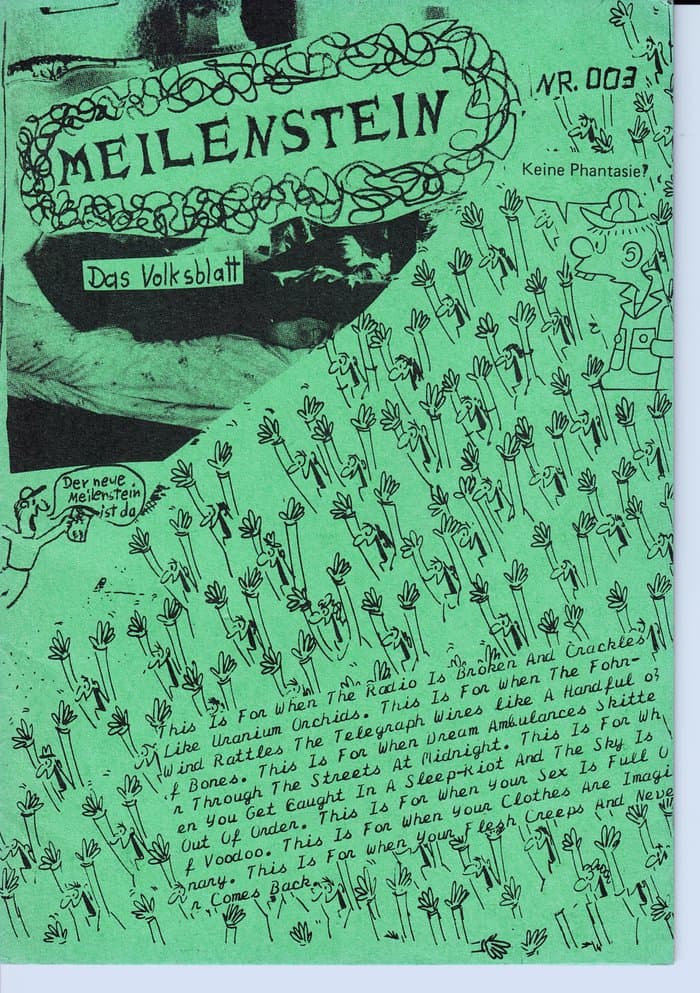 MEILENSTEIN
NR. 003
Keine Phantasie?
Das Volksblatt
Der neue
Meilenstein
ist da
This Is For When The Radio Is Broken And Crackles
Like Uranium Orchids. This Is For When The Fohn-
Wind Rattles The Telegraph Wires Like A Handful o
f Bones. This Is For When Dream Ambulances Skitte
r Through The Streets At Midnight. This Is For Wh
en You Get Caught In A Sleep-Riot And The Sky Is
Out Of Order. This Is For When Your Sex Is Full O
f Voodoo. This Is For When Your Clothes Are Imagi
nary. This Is For When Your Flesh Creeps And Neve
r Comes Back.